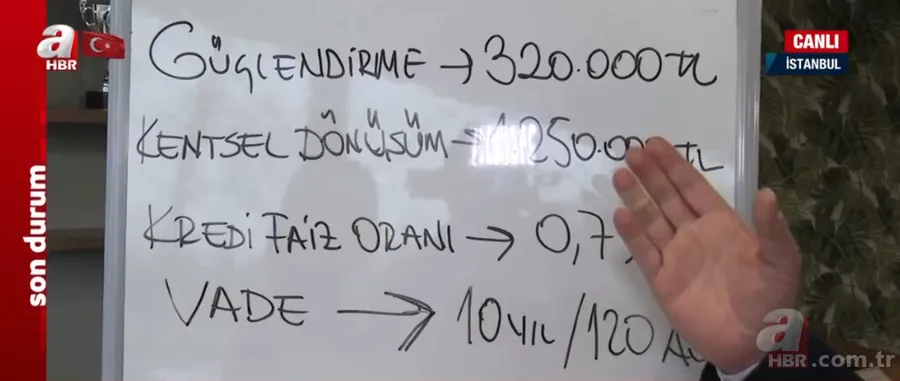 a
HBR
CANLI
İSTANBUL
GÜÇLENDİRME → 320.000 TL
KENTSEL DÖNÜŞÜM → 1.250.000 TL
KREDİ FAİZ ORANI → 0,7
VADE → 10 YIL / 120
son durum
a
HBR .com.tr